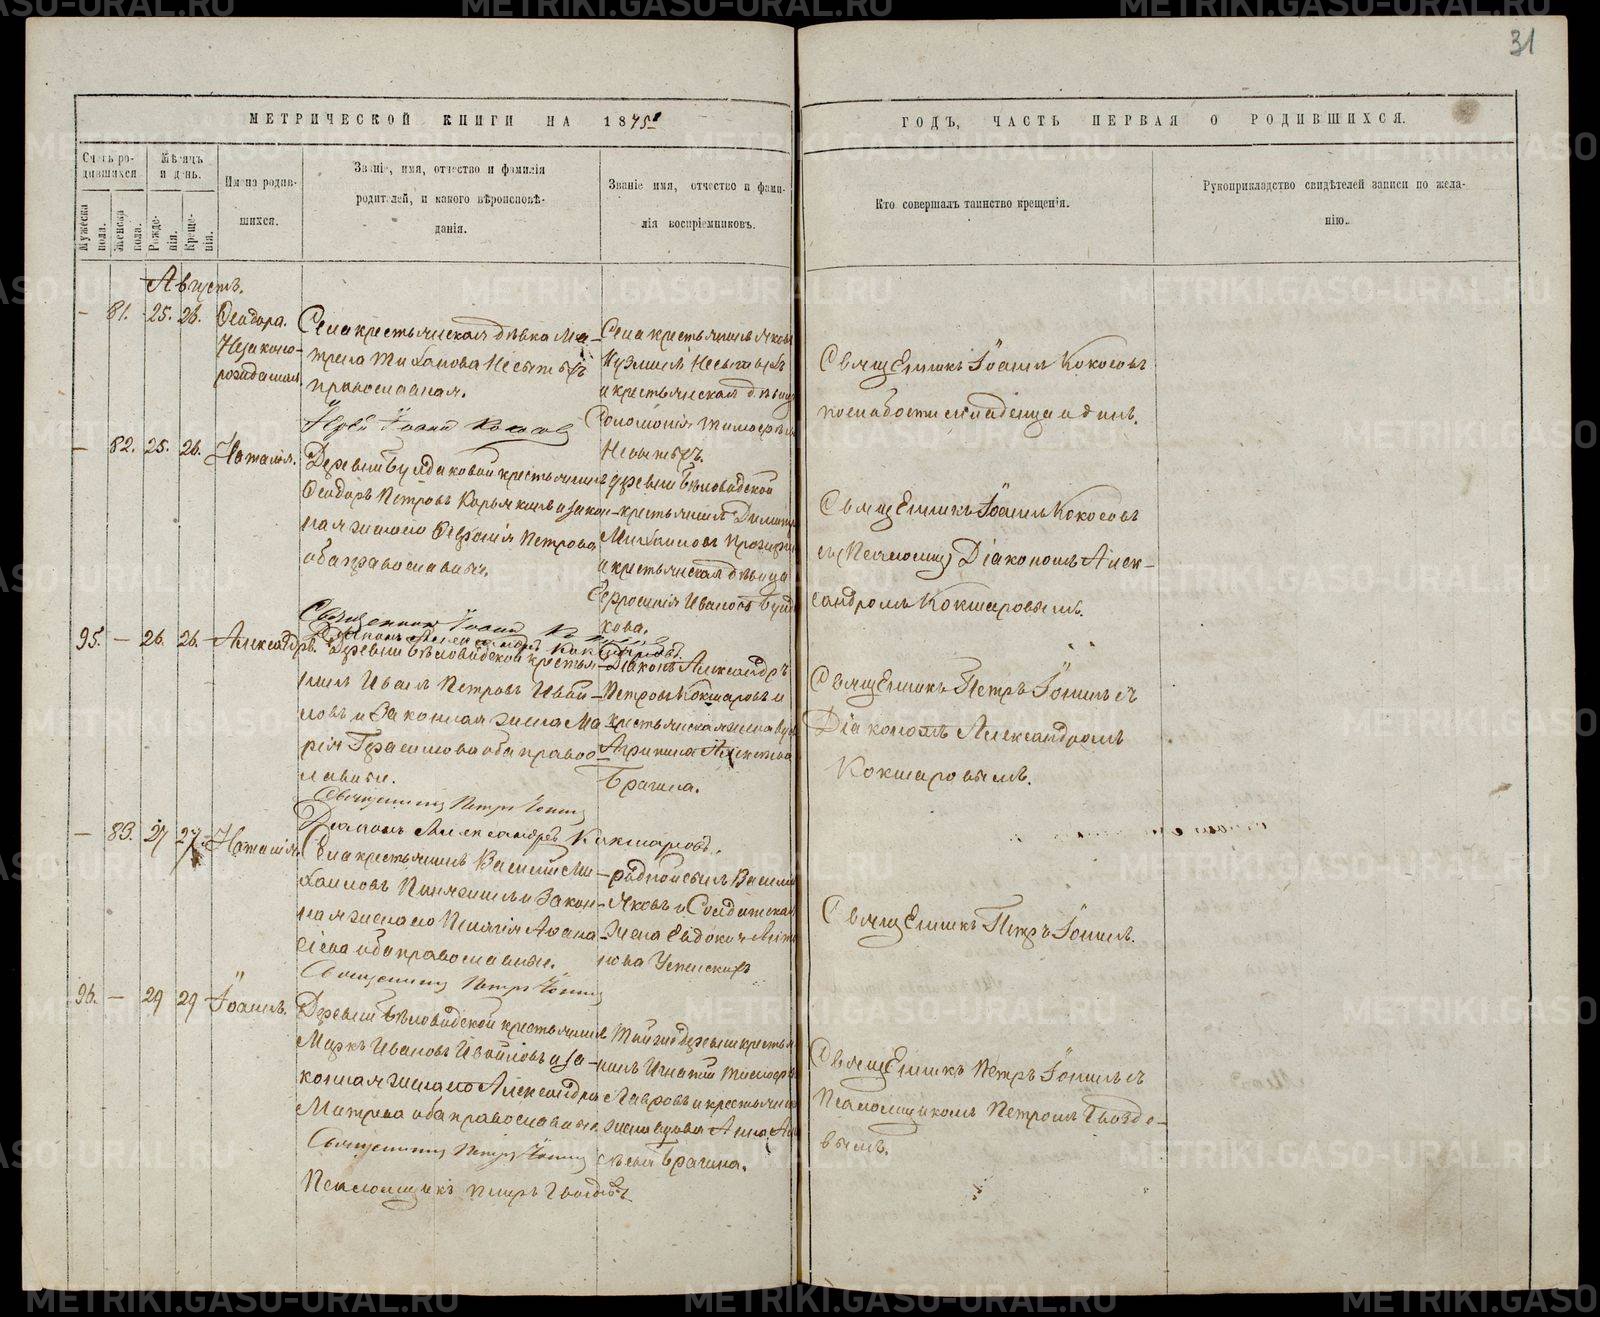 31
МЕТРИЧЕСКОЙ КНИГИ НА 1875
ГОДЪ, ЧАСТЬ ПЕРВАЯ О РОДИВШИХСЯ.
Счетъ ро-
дившихся
Мѣсяцъ
и день.
Мужеска
пола.
Женска
пола.
Рожде-
нія.
Креще-
нія.
Имена родив-
шихся.
Званіе, имя, отчество и фамилія
родителей, и какого вѣроисповѣ-
данія.
Званіе имя, отчество и фами-
лія воспріемниковъ.
Кто совершалъ таинство крещенія.
Рукоприкладство свидѣтелей записи по жела-
нію.
Августъ.
— 81. 25. 26. Ѳеодора.
Незаконо-
рожденная
Села крестьянская дѣвка Ма-
трена Тиханова Несытыхъ
православная.
Іерей Іоаннъ Кокосов
Села крестьянинъ Яковъ
Кузминъ Несытыхъ
и крестьянская дѣвица
Соломонія Тимофѣева
Несытыхъ.
Священникъ Іоаннъ Кокосовъ
по слабости младенца одинъ.
— 82. 25. 26. Наталія.
Деревни Булдаковой крестьянинъ
Ѳеодоръ Петровъ и закон-
ная жена его Петрова
оба православны.
Священникъ Іоаннъ
Діаконъ Александръ Кокшаровъ.
деревни Бѣловадской
крестьянинъ Димитр
Михаиловъ
и крестьянская дѣвица
Ефросинія Иванова Булда
кова.
Священникъ Іоаннъ Кокосовъ
съ Діакономъ Алек-
сандромъ Кокшаровымъ.
95. — 26. 26. Александръ.
Деревни Бѣловадской крестья-
нинъ Иванъ Петровъ Ивой-
ловъ и Законная жена Ма
рія Герасимова оба право-
славны.
Священникъ Петръ Іонинъ
Діаконъ Александръ Кокшаровъ.
Діаконъ Александръ
Петровъ Кокшаровъ и
крестьянская жена
Агрипина
Брагина.
Священникъ Петръ Іонинъ съ
Діакономъ Александромъ
Кокшаровымъ.
— 83. 27 27. Наталія.
Села крестьянинъ Василій Ми-
хаиловъ и Закон-
ная жена его Пелагія Аѳана-
сіева оба православны.
Священникъ Петръ Іонинъ
родной сынъ Василій
Яковъ и Солдатская
жена Евдокія
нова Успенскихъ
Священникъ Петръ Іонинъ.
96. — 29 29 Іоаннъ.
Деревни Бѣловадской крестьянинъ
Маркъ Ивановъ Ивойловъ и за-
конная жена его Александра
Матѳеева оба православны
Священникъ Петръ Іонинъ
Псаломщикъ Петръ Гвоздевъ
Той же деревни крестья
нинъ Игнатій Тимоѳе
Лавровъ и крестьянина
жена вдова Анна
Брагина.
Священникъ Петръ Іонинъ съ
Псаломщикомъ Петромъ Гвоздe-
вымъ.
METRIKI.GASO-URAL.RU